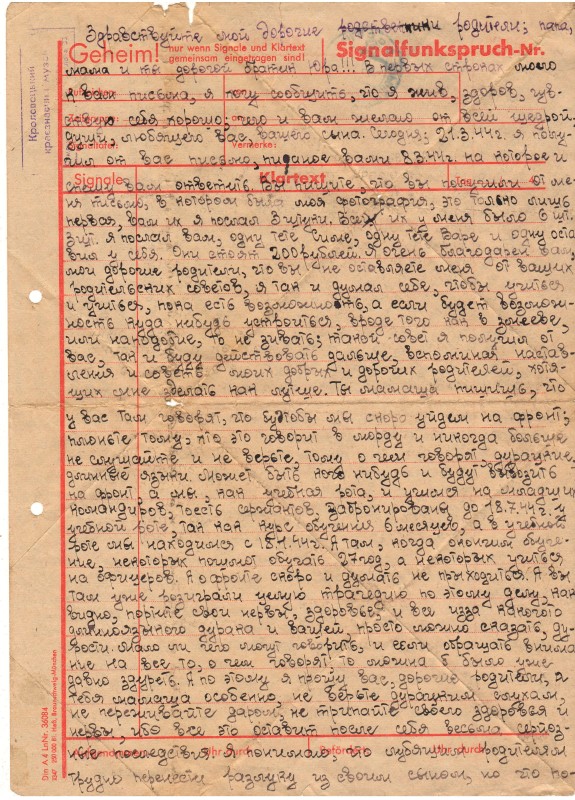 Здравствуйте мой дорогие родители; папа,
Geheim! nur wenn Signale und Klartext gemeinsam eingetragen sind! Signalfunkspruch-Nr.
мама и ты дорогой братец Юра!!! В первых строках моего
к вам письма, я хочу сообщить, что я жив, здоров, чув-
ствую себя хорошо; чего и вам желаю от всей щедрой
души, любящего вас, вашего сына. Сегодня; 21.3.44г. я полу-
Vermerke:
чил от вас письмо, писаное вами 8.3.44г. на которое и
Signale Klartext
спешу вам ответить. Вы пишите, что вы получили от ме-
ня письмо, в котором была моя фотография, это только лишь
первая, вам их я послал 3 штуки. Всех их у меня было 6 шт.
3 шт. я послал вам, одну тёте Симе, одну тёте Варе и одну оста
вил у себя. Они стоят 200 рублей. Я очень благодарен вам,
мои дорогие родители, что вы не оставляете меня от ваших
родительских советов, я так и думал себе, чтобы учиться
и учиться, пока есть возможность, а если будет возмож-
ность куда нибудь устроиться, вроде того как в змеёве,
или наподобие, то не зивать; такой совет я получил от
вас, так и буду действовать дальше, вспоминая настав-
ления и советы моих добрых и дорогих родителей, хотя-
щих мне зделать как лучше. Ты мамаша пишишь, что
у вас там говорят, что будтобы мы скоро уйдем на фронт;
плюньте тому, кто это говорит в морду и никогда больше
не слушайте и не верьте, тому о чем говорят дурацкие
длинные языки. Может быть кого нибудь и будут вывозить
на фронт, а мы, как учебная рота, и учимся на младших
командиров, тоесть сержантов. Забронированы до 18.7.44г. в
учебной роте, так как курс обучения 6 месяцев, а в учебной
роте мы находимся с 18.1.44г. А там, когда окончим обуче-
ние, некоторых пошлют обучать 27 год, а некоторых учиться
на офицеров. А о фронте скоро и думать не прыходиться. А вы
там уже розиграли целую трагедию по этому делу, как
видно, портите свои нервы, здоровье и все изза какого
длинноязычного дурака и вашей, просто можно сказать, ду-
рости. Мало ли чего могут говорить, и если обращать внима-
ние на все то, о чем говорят, то можно было уже
давно здуреть. А по этому я прошу вас, дорогие родители, а
тебя мамаша особенно, не верьте дурацким слухам,
не переживайте даром, не трипайте своего здоровья и
нервы, ибо все это оставит после себя весьма серйоз-
ные последствия. Я понимаю, что любящим родителям
Uhrdurch Befördert Uhr durch
трудно перенести разлуку из своим сыном, но что по-
Кролевецкий
краезнавчий музей
Din A 4 LaNr. 36084